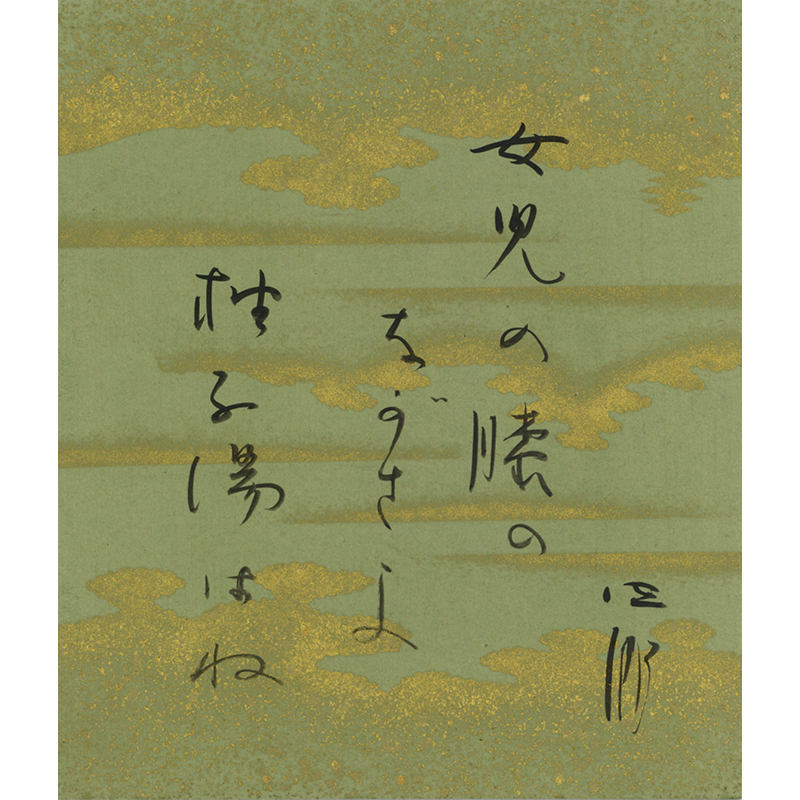 女児の膝の
ながさよ
柚子湯はね